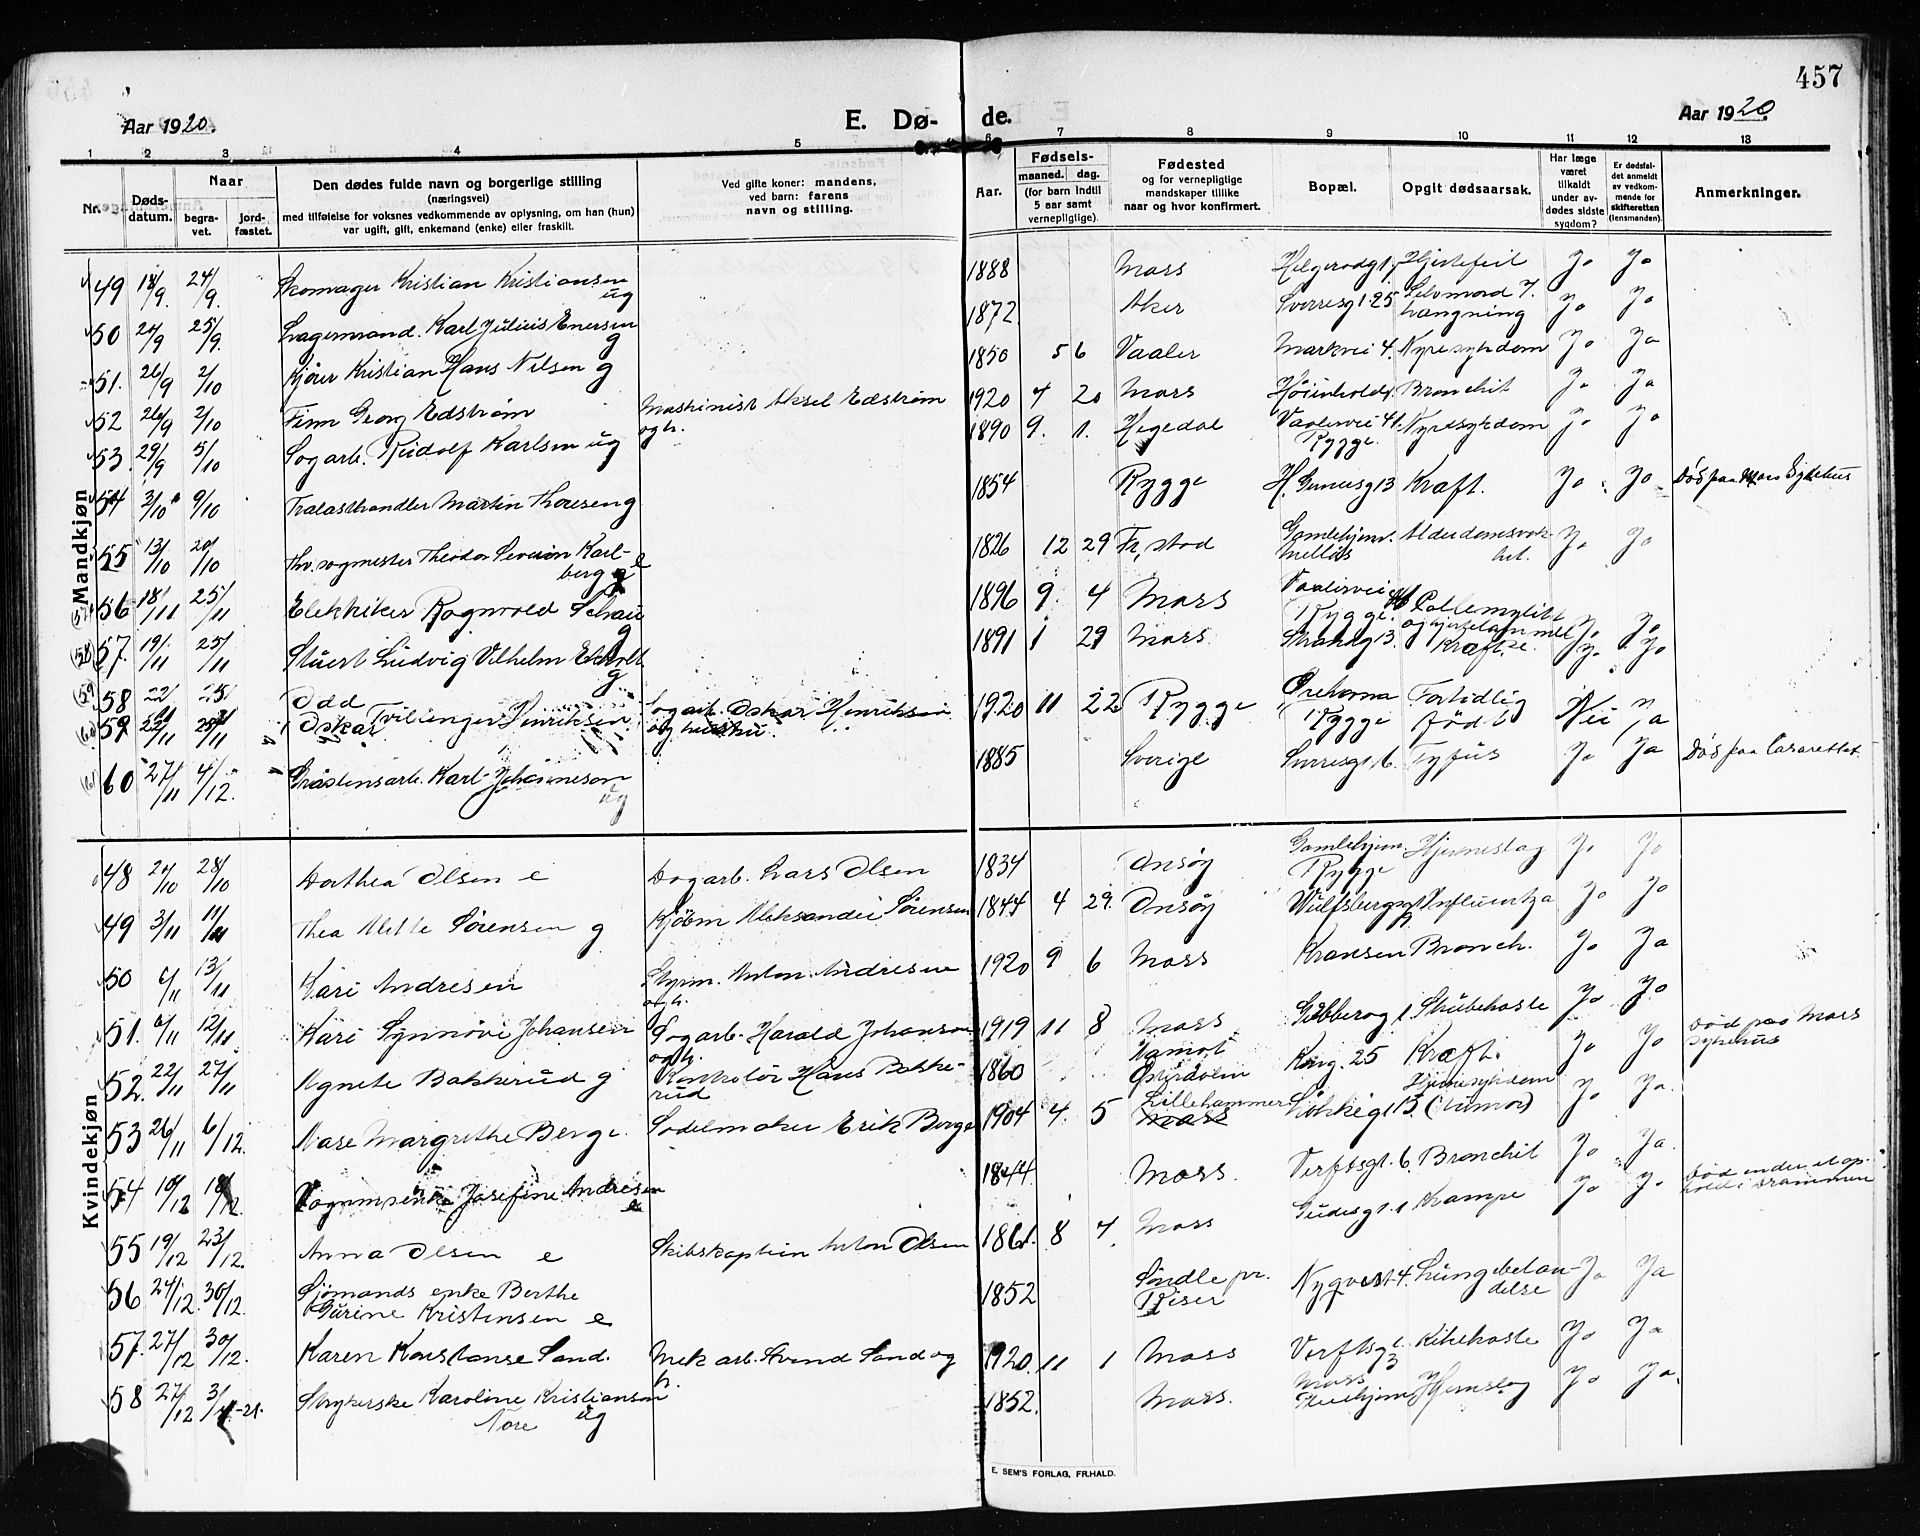 457
Aar 1920.
E. Dø- de.
Aar 1920.
1 2 3 4 5 6 7 8 9 10 11 12 13
Nr.
Døds-
datum.
Naar
begra-
vet.
jord-
fæstet.
Den dødes fulde navn og borgerlige stilling
(næringsvei)
med tilføielse for voksnes vedkommende av oplysning, om han (hun)
var ugift, gift, enkemand (enke) eller fraskilt.
Ved gifte koner: mandens,
ved barn: farens
navn og stilling.
Aar.
Fødsels-
maaned. dag.
(for barn indtil
5 aar samt
vernepligtige).
Fødested
og for vernepligtige
mandskaper tillike
naar og hvor konfirmert.
Bopæl.
Opgit dødsaarsak.
Har læge
været
tilkaldt
under av-
dødes sidste
sygdom?
Er dødsfal-
det anmeldt
av vedkom-
mende for
skifteretten
(lensmanden).
Anmerkninger.
Mandkjøn
49 18/9. 24/9. Skomager Kristian Kristiansen ug 1888 Moss Helgerødg 1 Hjertefeil Jo Ja
50 20/9 25/9. Lagermand. Karl Julius Enersen g 1872 Aker Sverresg 1. 25 Selvmord v. hængning Jo Ja
51. 26/9 2/10 Kjører Kristian Hans Nilsen g 1850 5 6 Vaaler Markvei 4. Nyresykdom Jo Ja
52 26/9 2/10 Finn Georg Edstrøm Maskinist Aksel Edstrøm og h. 1920 4 20 Moss Bronchit Jo Ja
53. 29/9 5/10 Sogarb. Rudolf Karlsen ug 1890 9. 1. Vaalervei 41. Rygge. Nyresykdom Jo Ja
54 3/10 9/10 Trælasthandler Martin Thoresen g 1854 Rygge H. Gunusg 13 Kræft. Jo Jo Død paa Moss Sykehus
55 13/10 20/10 Fhv. sogmester Theodor Severin Karlberg e 1826 12 29 Fr. stad Gamlehjem. Melløs Alderdomssvakhet. Jo Jo
56 18/11 25/11 Elektriker Rognvald Schau g 1896 9. 4 Moss Vaalervei Rygge. Jo Jo
57. 19/11 25/11 Stuert Ludvig Vilhelm g 1891 1 29 Moss. Strandg 13. Kræft. Jo Jo
58 22/11 25/11 Odd
59 22/11 25/11 Oskar Tvillinger Henriksen Sogarb. Oskar Henriksen og hustru 1920 11 22 Rygge Ørehavna Rygge Fortidlig født Nei Ja
60 27/11 4/12. Gråstensarb. Karl Johanneson ug 1885 Sverige Sverresgt. 6. Tyfus Jo Ja Død paa Lasarettet
Kvindekjøn
48 20/10 28/10 Dorthea Olsen e Dogarb. Lars Olsen 1834 Onsøy Gamlehjem. Rygge Hjerneslag Jo Jo
49 3/11 11/11 Thea Mette Sørensen g Kjøbm Aleksander Sørensen 1844 4 29. Onsøy Wulfsbergsg Influentza Jo Jo
50 6/11 13/11 Kari Andresen Styrm. Anton Andresen og h. 1920 9 6 Moss Kransen Bronch. Jo Ja
51. 6/11 12/11 Kari Synnøve Johansen Sogarb. Harald Johansen og h. 1919 11 8 Moss Gubberog 1 Strubehoste Jo Jo
52. 22/11 27/11 Agnete Bakkerud g Kontrolør Hans Bakkerud 1860 Aamot Østerdalen Kong. 25 Kræft. Jo Jo Død paa Moss Sykehus
53 26/11 6/12. Aase Margrethe Berge. Sadelmaker Erik Berge 1904 4. 5 Lillehammer Moss Hjernesykdom (tumor) Jo Ja.
54 10/12 18/12. Vognmsenke Josefine Andresen e 1844 Moss. Verftsgt. 6. Bronchit Jo Ja.
55 19/12 23/12. Anna Olsen e Skibskaptein Anton Olsen 1861. 8 4. Moss Gudesgt. 1 Krampe Jo Jo Død under et ophold i Drammen
56 24/12. 30/12. Sjømands enke Berthe Gurine Kristensen e 1852 Søndle pr. Risør Lungebetændelse Jo Ja
57. 27/12 30/12. Karen Konstanse Sand. Mek arb. Svend Sand og h. 1920. 11 1 Moss Verftsgt 3 Kikehoste Jo Ja
58 27/12 3/1-21. Strykerske Karoline Kristianson Nore ug 1852. Moss. Moss Pleiehjem Hjernslag Jo Ja.
E. SEM'S FORLAG, FR.HALD.